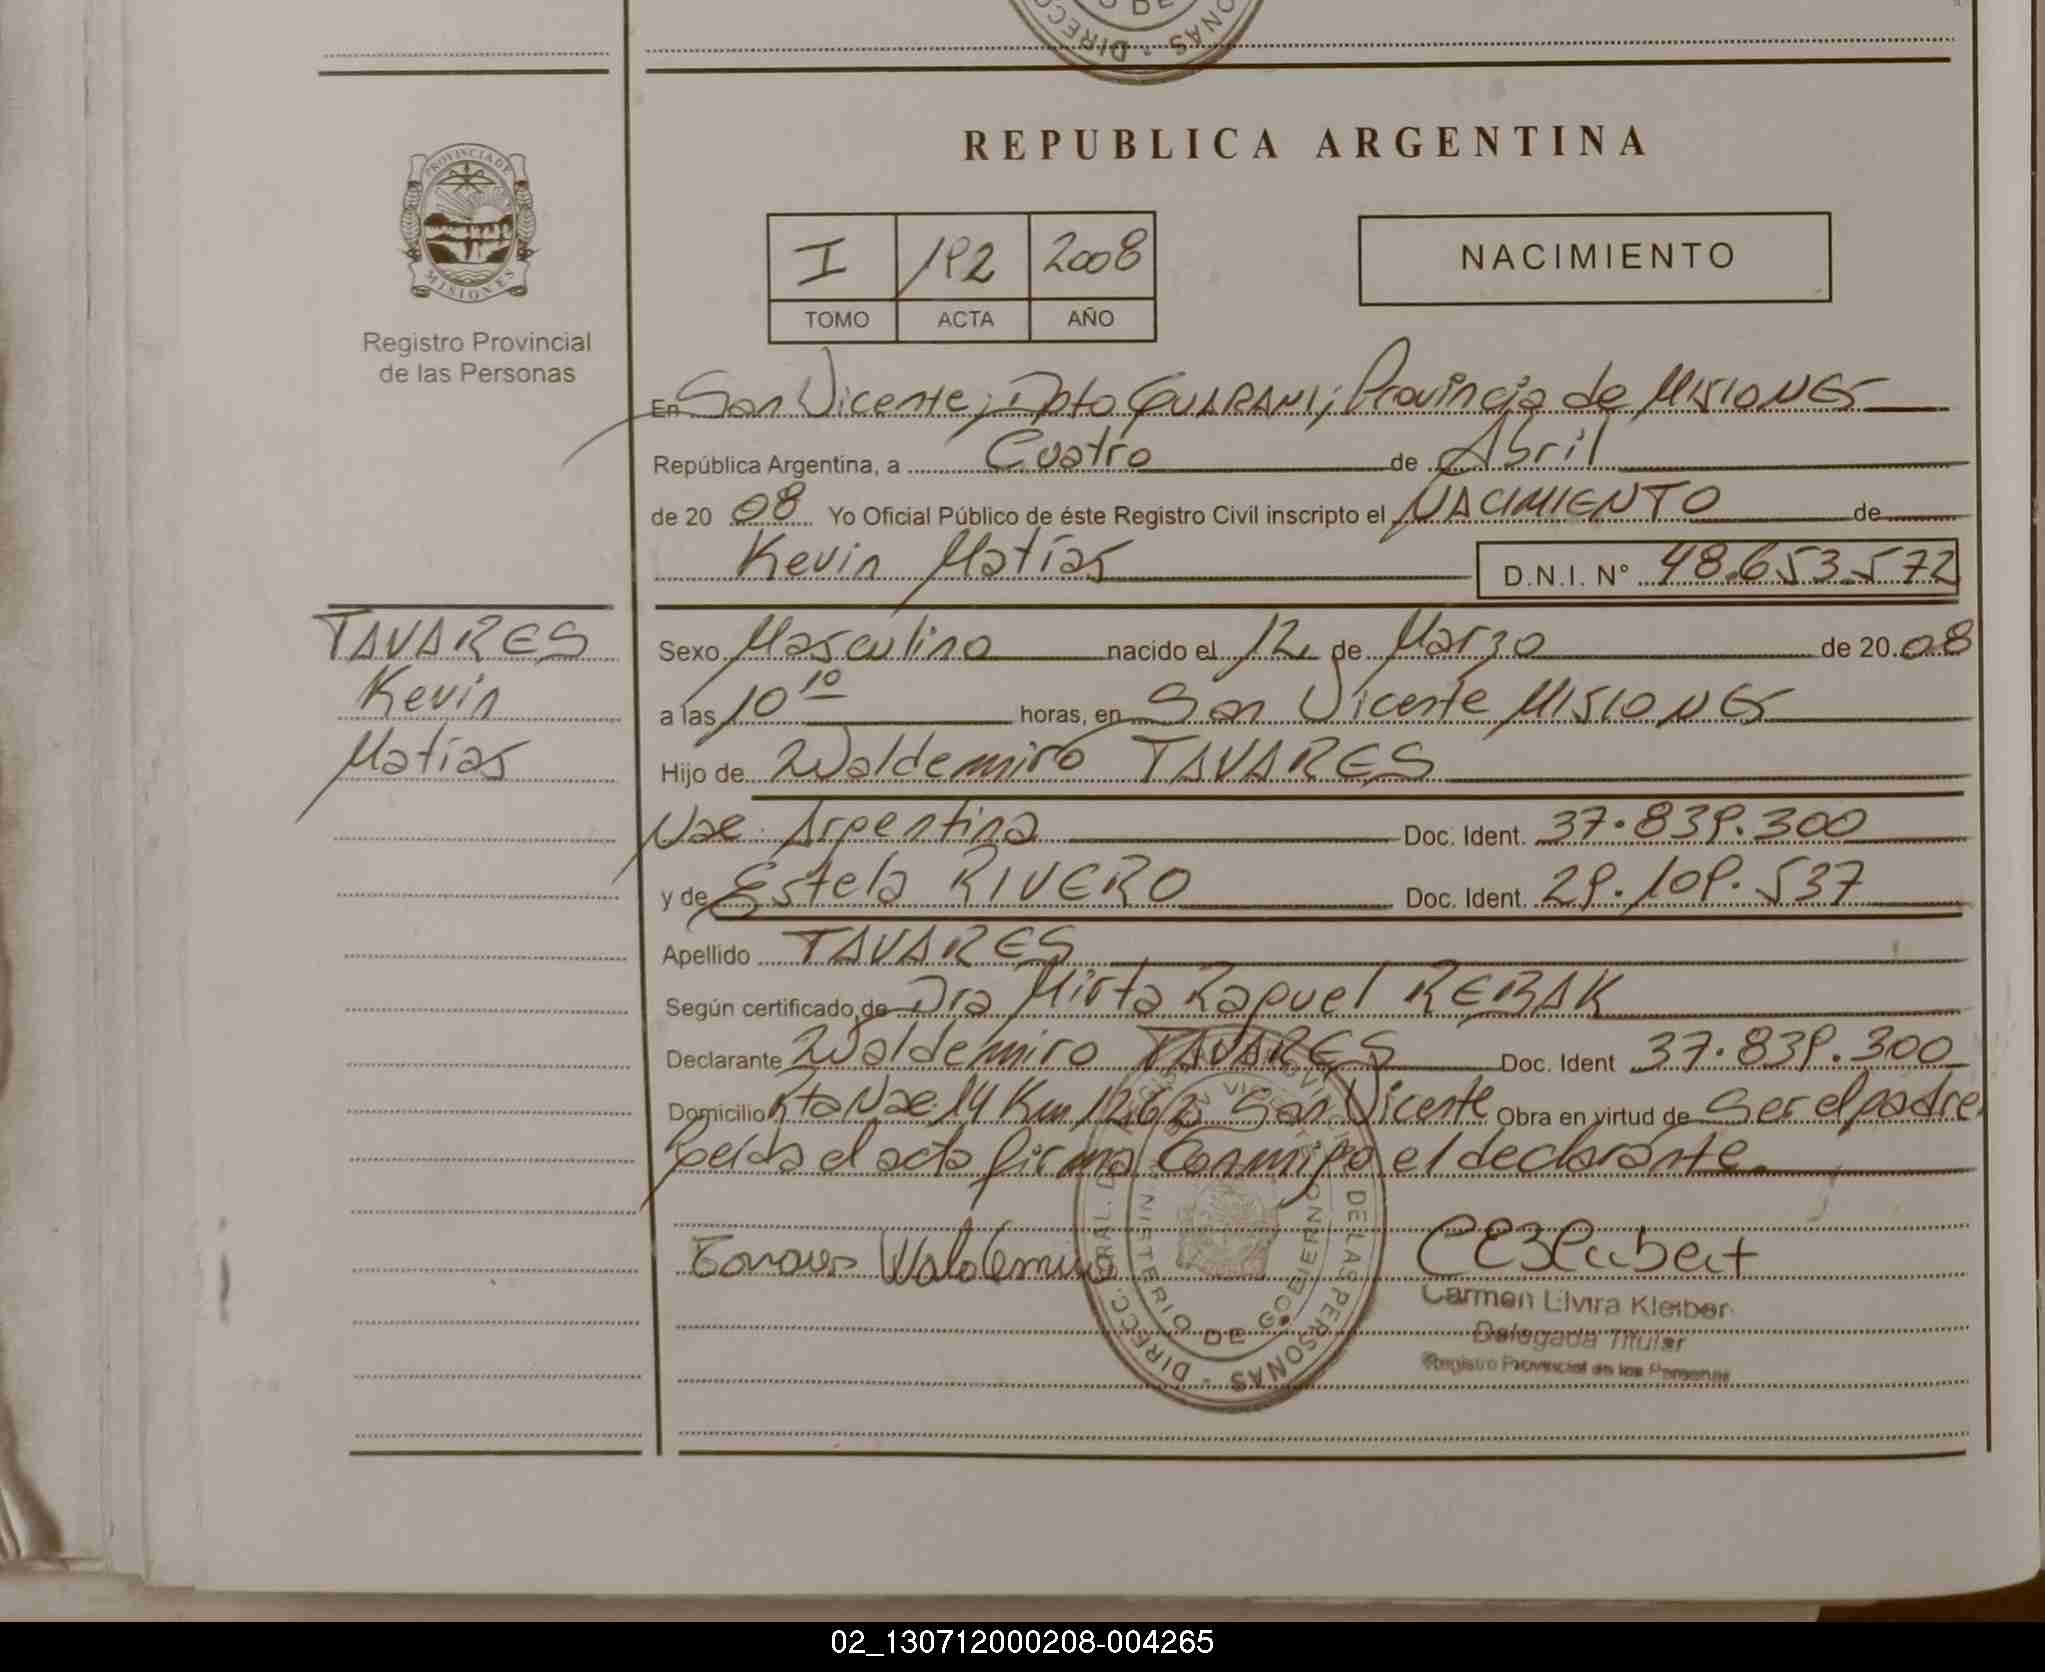 DIRECC NAS
REPUBLICA ARGENTINA
PROVINCIA DE
MISIONES
Registro Provincial
de las Personas
I 192 2008
TOMO ACTA AÑO
NACIMIENTO
En San Vicente, Dpto GUARANI; Provincia de MISIONES
República Argentina, a Cuatro de Abril
de 20 08 Yo Oficial Público de éste Registro Civil inscripto el NACIMIENTO de
Kevin Matías D.N.I. N° 48.653.572
TAVARES
Kevin
Matías
Sexo Masculino nacido el 12 de Marzo de 20 08
a las 10 10 horas, en San Vicente MISIONES
Hijo de Waldemiro TAVARES
Nac. Argentina Doc. Ident. 37.839.300
y de Estela RIVERO Doc. Ident. 29.109.537
Apellido TAVARES
Según certificado de Dra Mirta Raquel REBAK
Declarante Waldemiro TAVARES Doc. Ident 37.839.300
Domicilio Rta Nac. 14 Km 1262 San Vicente Obra en virtud de Ser el padre
Leída el acta firma Conmigo el declarante.
Tavares Waldemiro
Carmen Elvira Kleiber
Delegada Titular
Registro Provincial de las Personas
DIRECC. GRAL. DE LAS PERSONAS
MINISTERIO DE GOBIERNO
02_130712000208-004265